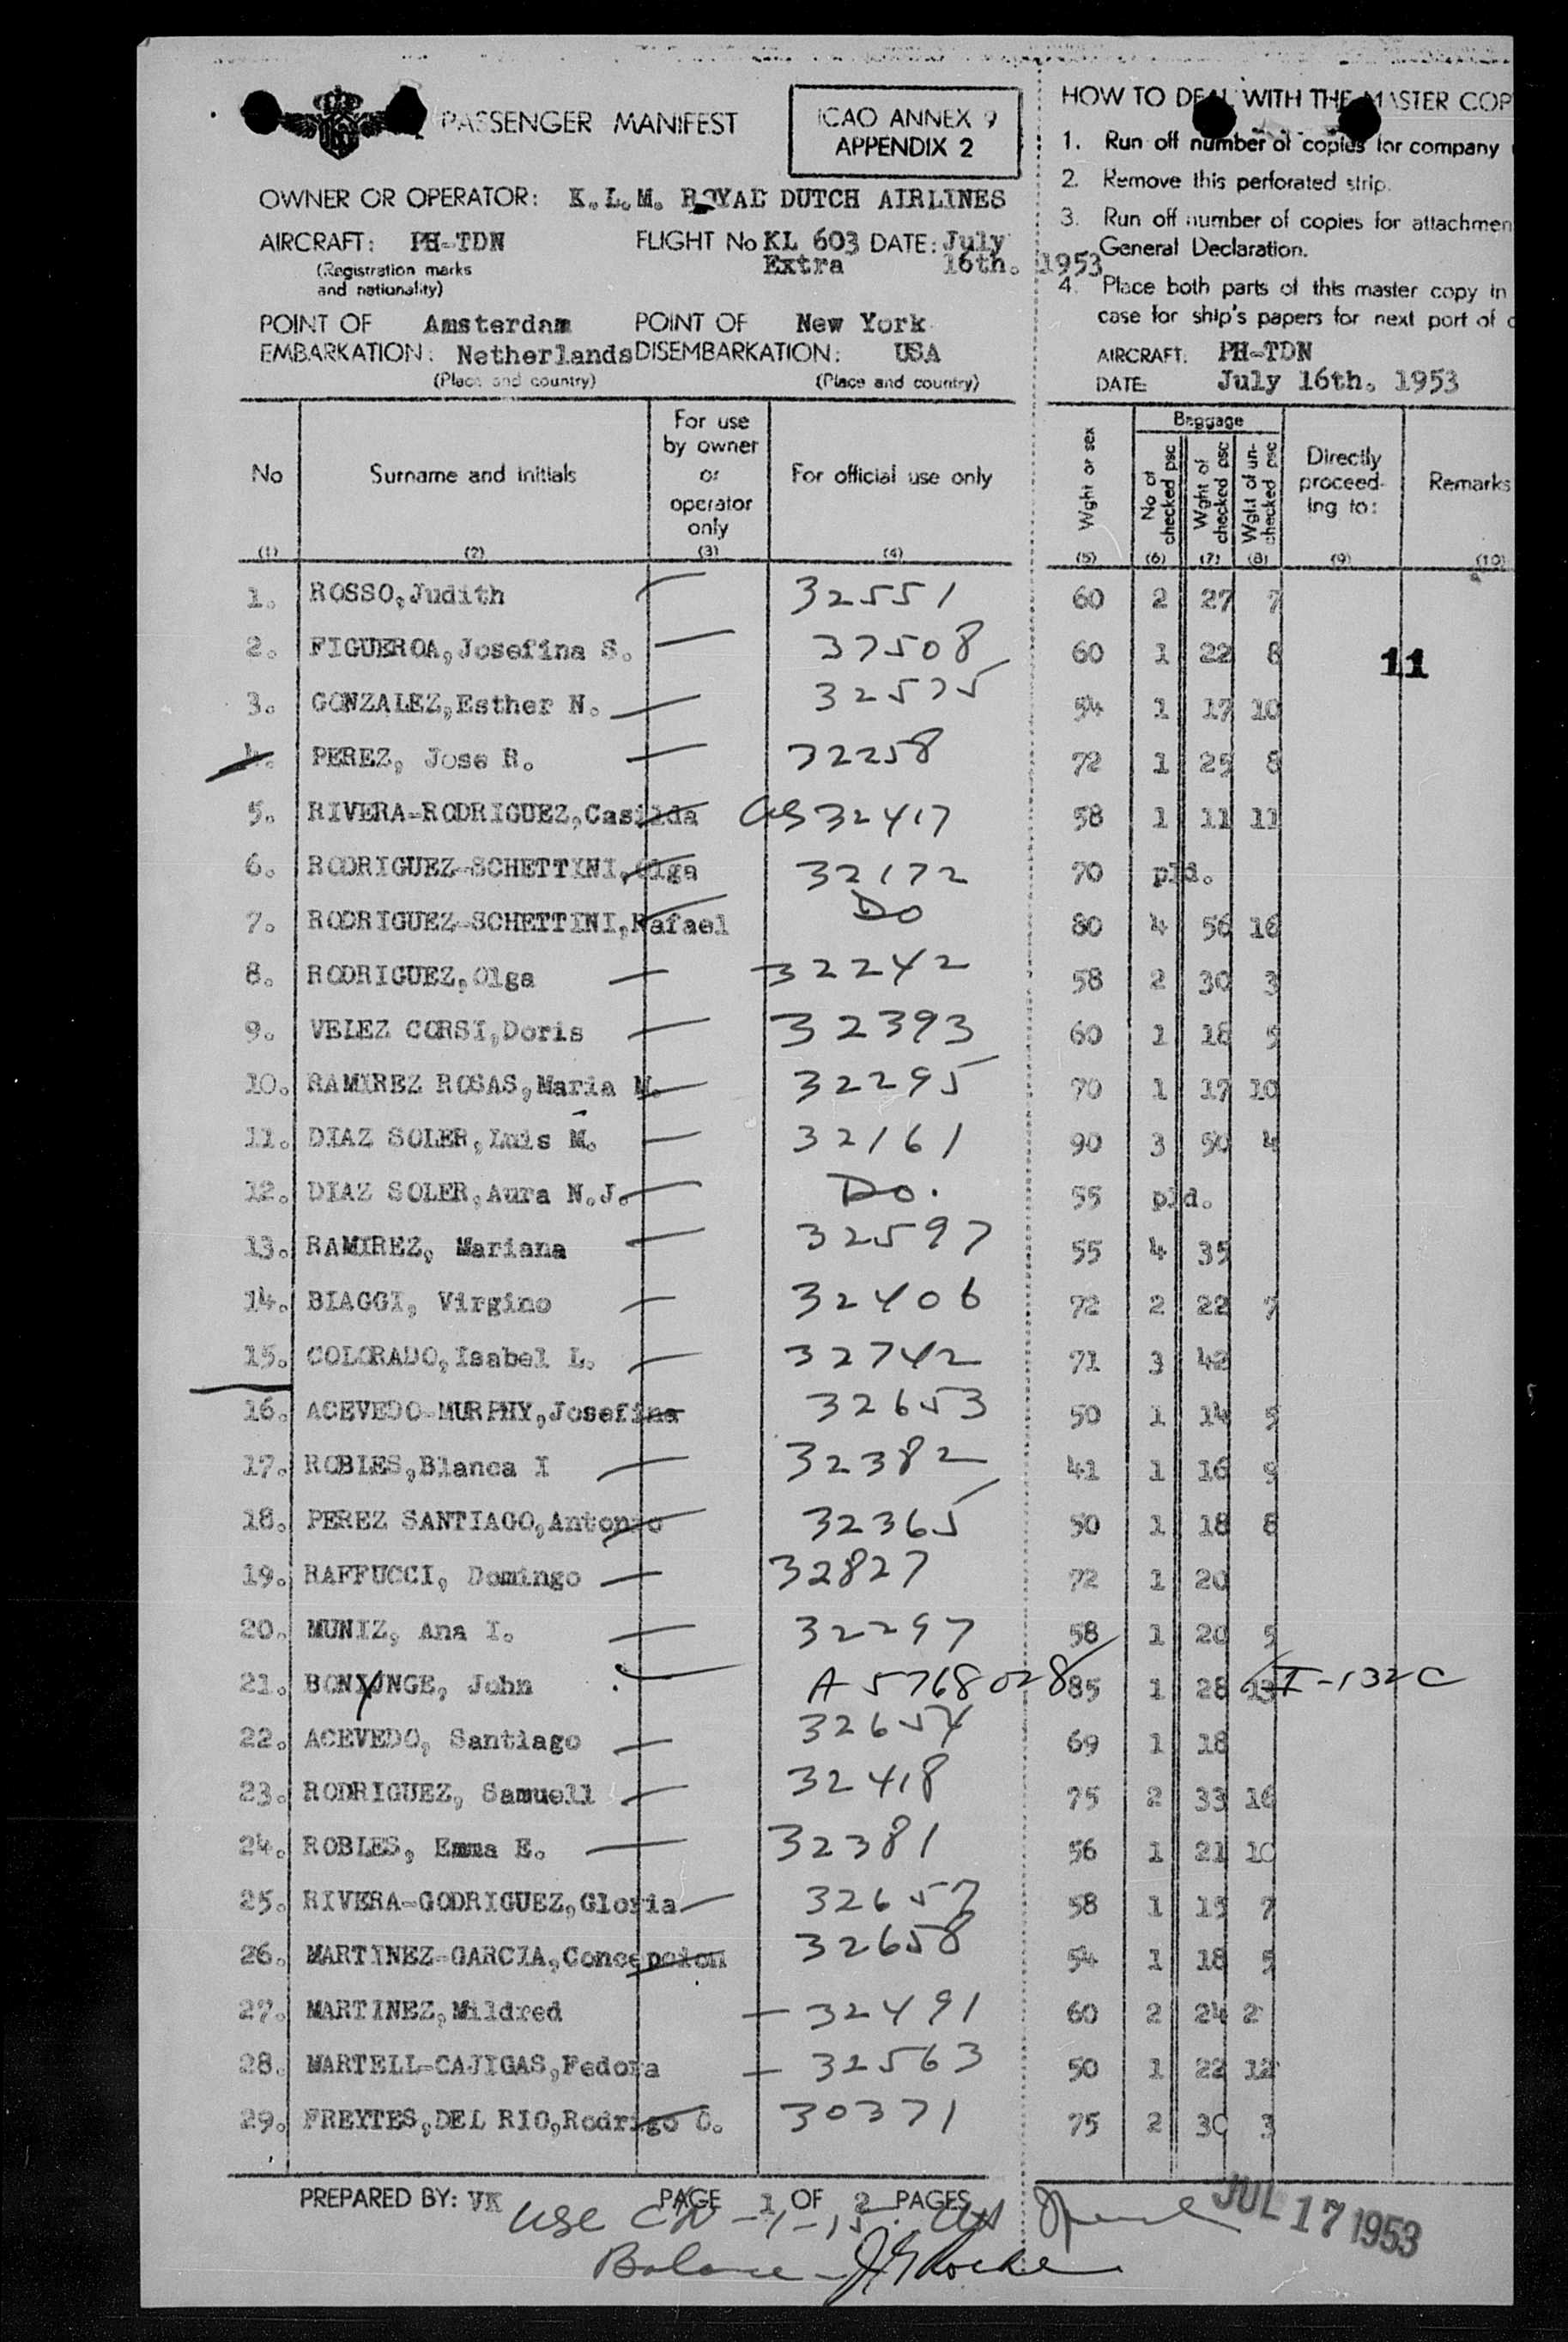 PASSENGER MANIFEST
ICAO ANNEX 9
APPENDIX 2
OWNER OR OPERATOR: K.L.M. ROYAL DUTCH AIRLINES
AIRCRAFT: PH-TDN FLIGHT No KL 603 DATE: July
(Registration marks Extra 16th. 1953
and nationality)
POINT OF Amsterdam POINT OF New York
EMBARKATION: Netherlands DISEMBARKATION: USA
(Place and country) (Place and country)
HOW TO DEAL WITH THE MASTER COP
1. Run off number of copies for company
2. Remove this perforated strip.
3. Run off number of copies for attachmen
General Declaration.
4. Place both parts of this master copy in
case for ship's papers for next port of
AIRCRAFT: PH-TDN
DATE: July 16th. 1953
No Surname and initials For use by owner or operator only For official use only Wght or sex Baggage No of checked psc Wght of checked psc Wght of un-checked psc Directly proceed-ing to: Remarks
(1) (2) (3) (4) (5) (6) (7) (8) (9) (10)
1. ROSSO,Judith 32551 60 2 27 7
2. FIGUEROA,Josefina S. 37508 60 1 22 8 11
3. GONZALEZ,Esther N. 32575 54 1 17 10
4. PEREZ, Jose R. 32258 72 1 25 8
5. RIVERA-RODRIGUEZ,Casilda 32417 58 1 11 11
6. RODRIGUEZ-SCHETTINI,Olga 32172 70 pld.
7. RODRIGUEZ-SCHETTINI,Rafael Do 80 4 56 16
8. RODRIGUEZ,Olga 32242 58 2 30 3
9. VELEZ CORSI,Doris 32393 60 1 18 5
10. RAMIREZ ROSAS,Maria M. 32295 70 1 17 10
11. DIAZ SOLER,Luis M. 32161 90 3 50 4
12. DIAZ SOLER,Aura N.J. Do. 55 pld.
13. RAMIREZ, Mariana 32597 55 4 35
14. BIAGGI, Virgino 32406 72 2 22 7
15. COLORADO,Isabel L. 32742 71 3 42
16. ACEVEDO-MURPHY,Josefina 32653 50 1 14 5
17. ROBLES,Blanca I 32382 41 1 16 9
18. PEREZ SANTIAGO,Antonio 32365 50 1 18 8
19. RAFFUCCI, Domingo 32827 72 1 20
20. MUNIZ, Ana I. 32297 58 1 20 5
21. BONYUNGE, John A 5768028 85 1 28 13 I-132C
22. ACEVEDO, Santiago 32654 69 1 18
23. RODRIGUEZ, Samuell 32418 75 2 33 16
24. ROBLES, Emma E. 32381 56 1 21 10
25. RIVERA-GODRIGUEZ,Gloria 32657 58 1 15 7
26. MARTINEZ-GARCIA,Concepcion 32658 54 1 18 5
27. MARTINEZ,Mildred 32491 60 2 24 2
28. MARTELL-CAJIGAS,Fedora 32563 50 1 22 12
29. FREYTES,DEL RIO,Rodrigo C. 30371 75 2 30 3
PREPARED BY: VK PAGE 1 OF 2 PAGES
JUL 17 1953
Balance